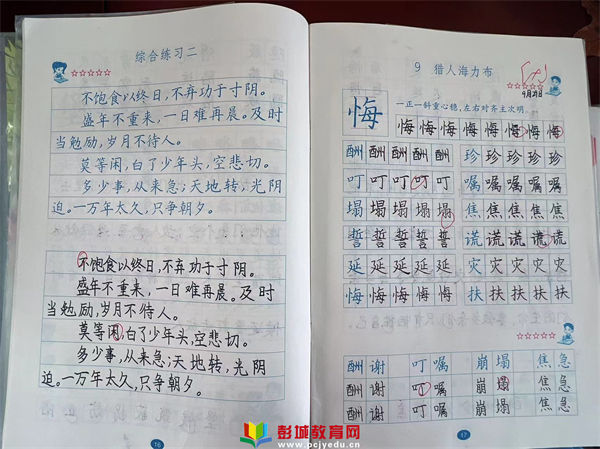 综合练习二
不饱食以终日,不弃功于寸阴。
盛年不重来,一日难再晨。及时
当勉励,岁月不待人。
莫等闲,白了少年头,空悲切。
多少事,从来急;天地转,光阴
迫。一万年太久,只争朝夕。
不饱食以终日,不弃功于寸阴。
盛年不重来,一日难再晨。及时
当勉励,岁月不待人。
莫等闲,白了少年头,空悲切。
多少事,从来急;天地转,光阴
迫。一万年太久,只争朝夕。
16
9 猎人海力布
9月27日
一正一斜重心稳,左右对齐主次明。
悔 悔悔悔悔悔悔悔
酬酬酬酬酬 珍珍珍珍珍
叮叮叮叮叮 嘱嘱嘱嘱嘱
塌塌塌塌塌 焦焦焦焦焦
誓誓誓誓誓 谎谎谎谎谎
延延延延延 灾灾灾灾灾
悔悔悔悔悔 扶扶扶扶扶
酬谢 叮嘱 崩塌 焦急
酬谢 叮嘱 崩塌 焦急
酬谢 叮嘱 崩塌 焦急
17
彭城教育网
www.pcjyedu.cn